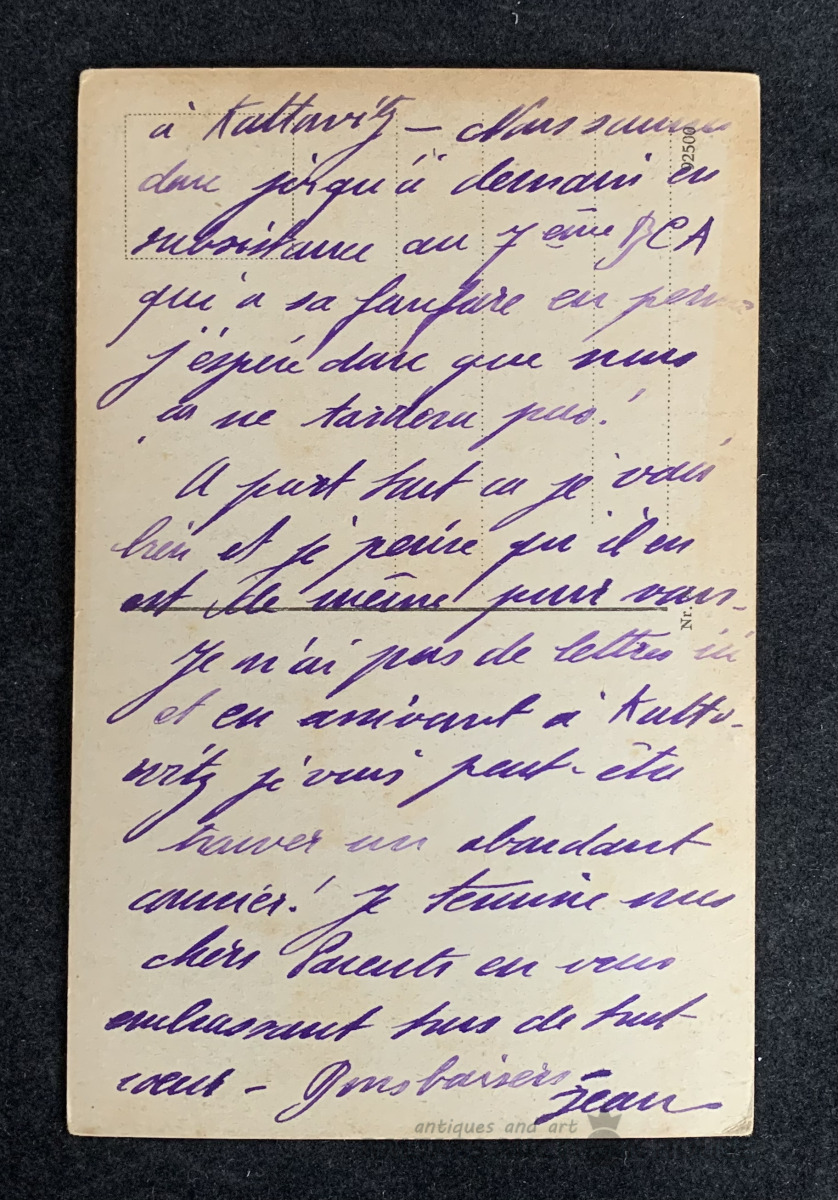 à Kattowitz – Nous sommes
donc jusqu'à demain en
subsistance au 7ème BCA
qui a sa fanfare en perm
j'espère donc que nous
ça ne tardera pas!
A part tout ça je vais
bien et je pense qu'il en
est de même pour vous.
Je n'ai pas de lettres ici
et en arrivant à Katto-
witz je vais peut-être
trouver un abondant
courrier! Je termine mes
chers Parents en vous
embrassant tous de tout
cœur – Bons baisers
Jean
92500
Nr.
antiques and art